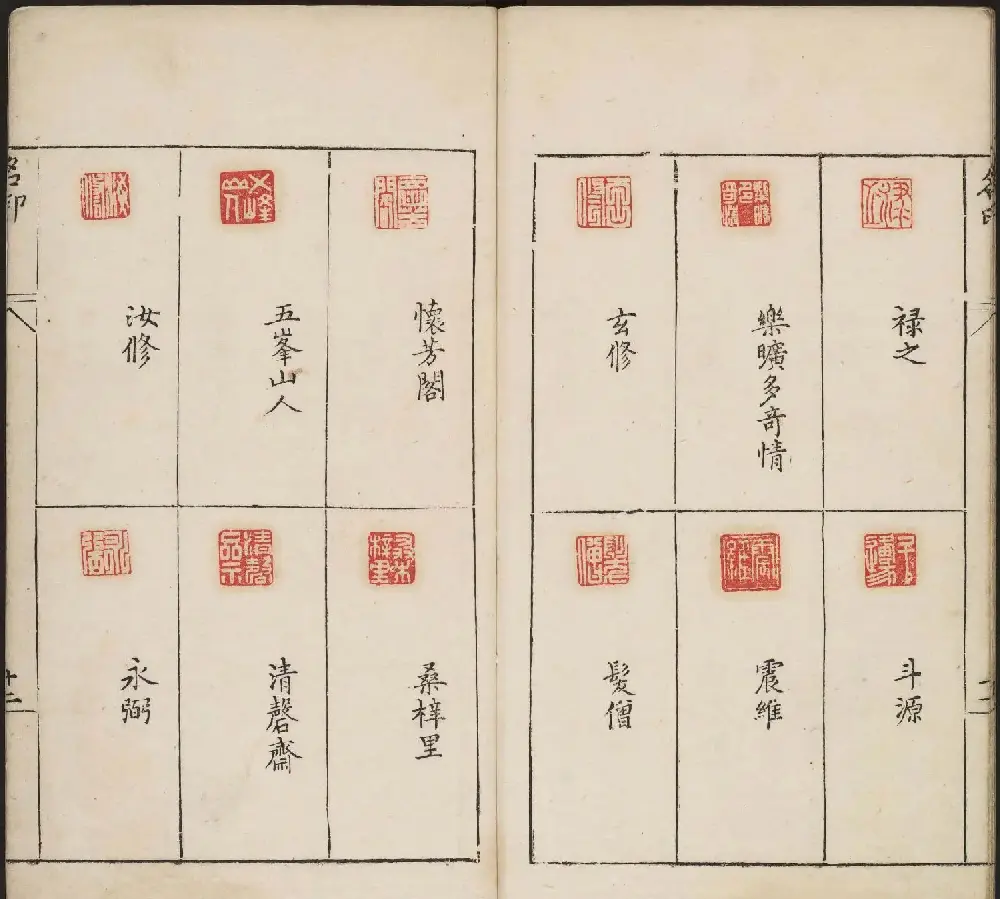 禄之
樂曠多奇情
玄修
斗源
震維
髮僧
懷芳閣
五峯山人
汝修
桑梓里
清磬齋
永弼
名印
十二